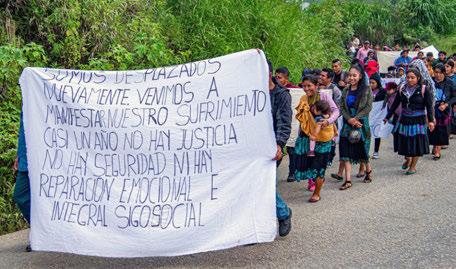 SOMOS DESPLAZADOS
NUEVAMENTE VENIMOS A
MANIFESTAR NUESTRO SUFRIMIENTO
CASI UN AÑO NO HAY JUSTICIA
NO HAY SEGURIDAD NI HAY
REPARACION EMOCIONAL E
INTEGRAL SIGOSOCIAL